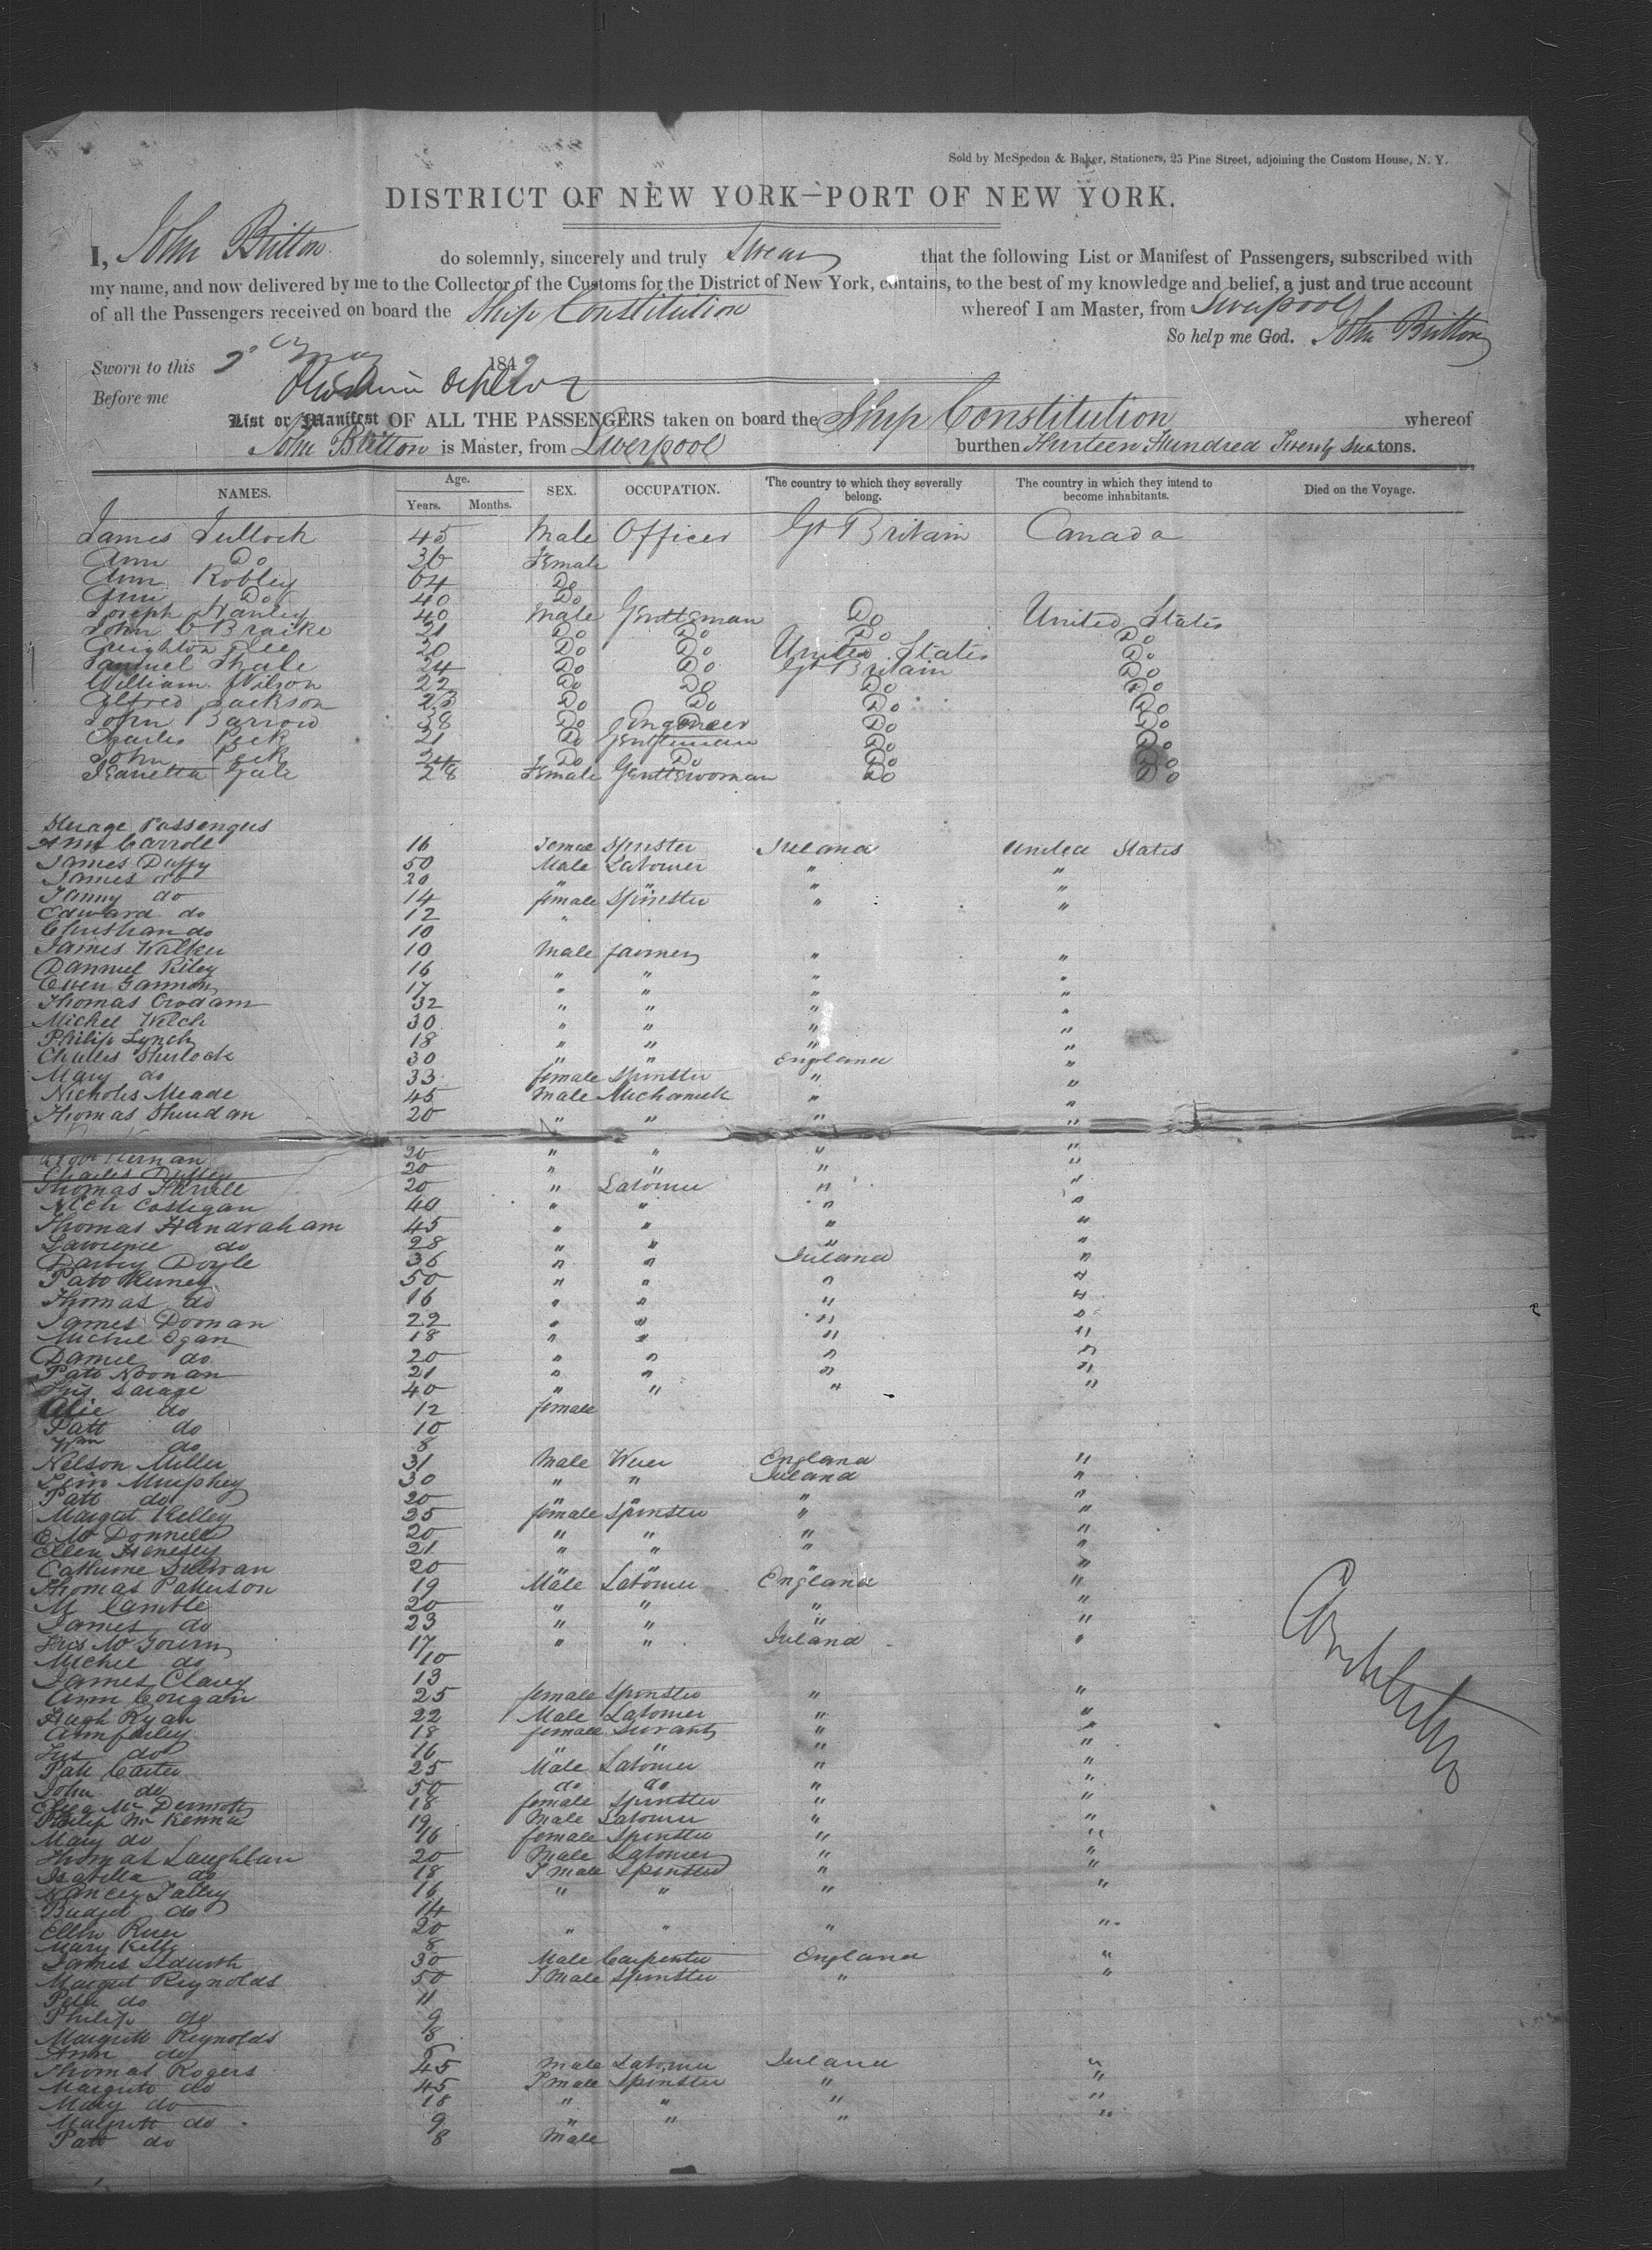 Sold by McSpedon & Baker, Stationers, 25 Pine Street, adjoining the Custom House, N. Y.
DISTRICT OF NEW YORK—PORT OF NEW YORK.
I, John Britton do solemnly, sincerely and truly Swear that the following List or Manifest of Passengers, subscribed with
my name, and now delivered by me to the Collector of the Customs for the District of New York, contains, to the best of my knowledge and belief, a just and true account
of all the Passengers received on board the Ship Constitution whereof I am Master, from Liverpool
So help me God. John Britton
Sworn to this 2 May 1849
Before me
List or Manifest OF ALL THE PASSENGERS taken on board the Ship Constitution whereof
John Britton is Master, from Liverpool burthen Thirteen Hundred Twenty tons.
NAMES. Age. Years. Months. SEX. OCCUPATION. The country to which they severally belong. The country in which they intend to become inhabitants. Died on the Voyage.
James Tullock 45 Male Officer Gt Britain Canada
Ann Do 36 Female
Ann Robley 64 Do
Ann Do 40 Do
Joseph Stanley 40 Male Gentleman Do United States
John C Braike 21 Do Do Do Do
Creighton Lee 20 Do Do United States Do
Samuel Thale 24 Do Do Gt Britain Do
William Wilson 22 Do Do Do Do
Alfred Jackson 23 Do Do Do Do
John Barrow 38 Do Engineer Do Do
Charles Peck 21 Do Gentleman Do Do
John Peck 24 Do Do Do Do
Gale 28 Female Gentlewoman Do Do
Sterage Passengers
Ann Carroll 16 Femal Spinster Ireland United States
James Duffy 50 Male Labourer " "
James do 20 " "
Fanny do 14 female Spinster " "
Edward do 12 "
Christian do 10
James Walker 10 Male farmer " "
Danniel Riley 16 " " " "
Owen Gannon 17 " " " "
Thomas Crodam 32 " " " "
Michel Welch 30 " " " "
Philip Lynch 18 " " " "
Charles Sherlock 30 " " England "
Mary do 33 female Spinster " "
Nicholis Meade 45 Male Michanick " "
Thomas Sheridan 20 " " " "
Kernan 20 " " " "
Charles Duffey 20 " " " "
Thomas Farrell 20 " Labourer " "
Nich Costigan 40 " " " "
Thomas Handraham 45 " " " "
Lawrence do 28 " " " "
Darby Doyle 36 " " Ireland "
Patt Kerney 50 " " " "
Thomas do 16 " " " "
James Doonan 22 " " " "
Michel Egan 18 " " " "
Daniel do 20 " " " "
Patt Noonan 21 " " " "
Savage 40 " " " "
Alie do 12 female
Patt do 10
Wm do 8
Nelson Miller 31 Male England "
Murphey 30 " " Ireland "
Patt do 20 " " " "
Margret Kelley 25 female Spinster " "
E McDonnell 20 " " " "
Ellen Henesey 21 " " " "
Catherine Sullivan 20 " " " "
Thomas Patterson 19 Male Labourer England "
M Camble 20 " " " "
James do 23 " " " "
McGovern 17 " " Ireland "
Michel do 10
James Clary 13
Ann Corigan 25 female Spinster " "
Hugh Ryan 22 Male Labourer " "
Ann farley 18 female Servant " "
do 16 " " " "
Patt Carter 25 Male Labourer " "
John do 50 do do " "
Mc Dermott 18 female Spinster " "
Philip Mc Kenna 19 Male Labourer " "
Mary do 16 female Spinster " "
Thomas Laughlan 20 Male Labourer " "
Isabella do 18 Fmale Spinster " "
Nancey Talley 16 " " " "
Bridget do 14
Ellen 20 " " " "
Mary Kelly 8
James 30 Male Carpenter England "
Margret Reynolds 50 Fmale Spinster " "
Peter do 11
Philip do 9
Margrett Reynolds 8
Ann do
Thomas Rogers 45 Male Labourer Ireland "
Margrett do 45 Fmale Spinster " "
Mary do 18 " " " "
Margrett do 9 " " " "
Patt do 8 Male